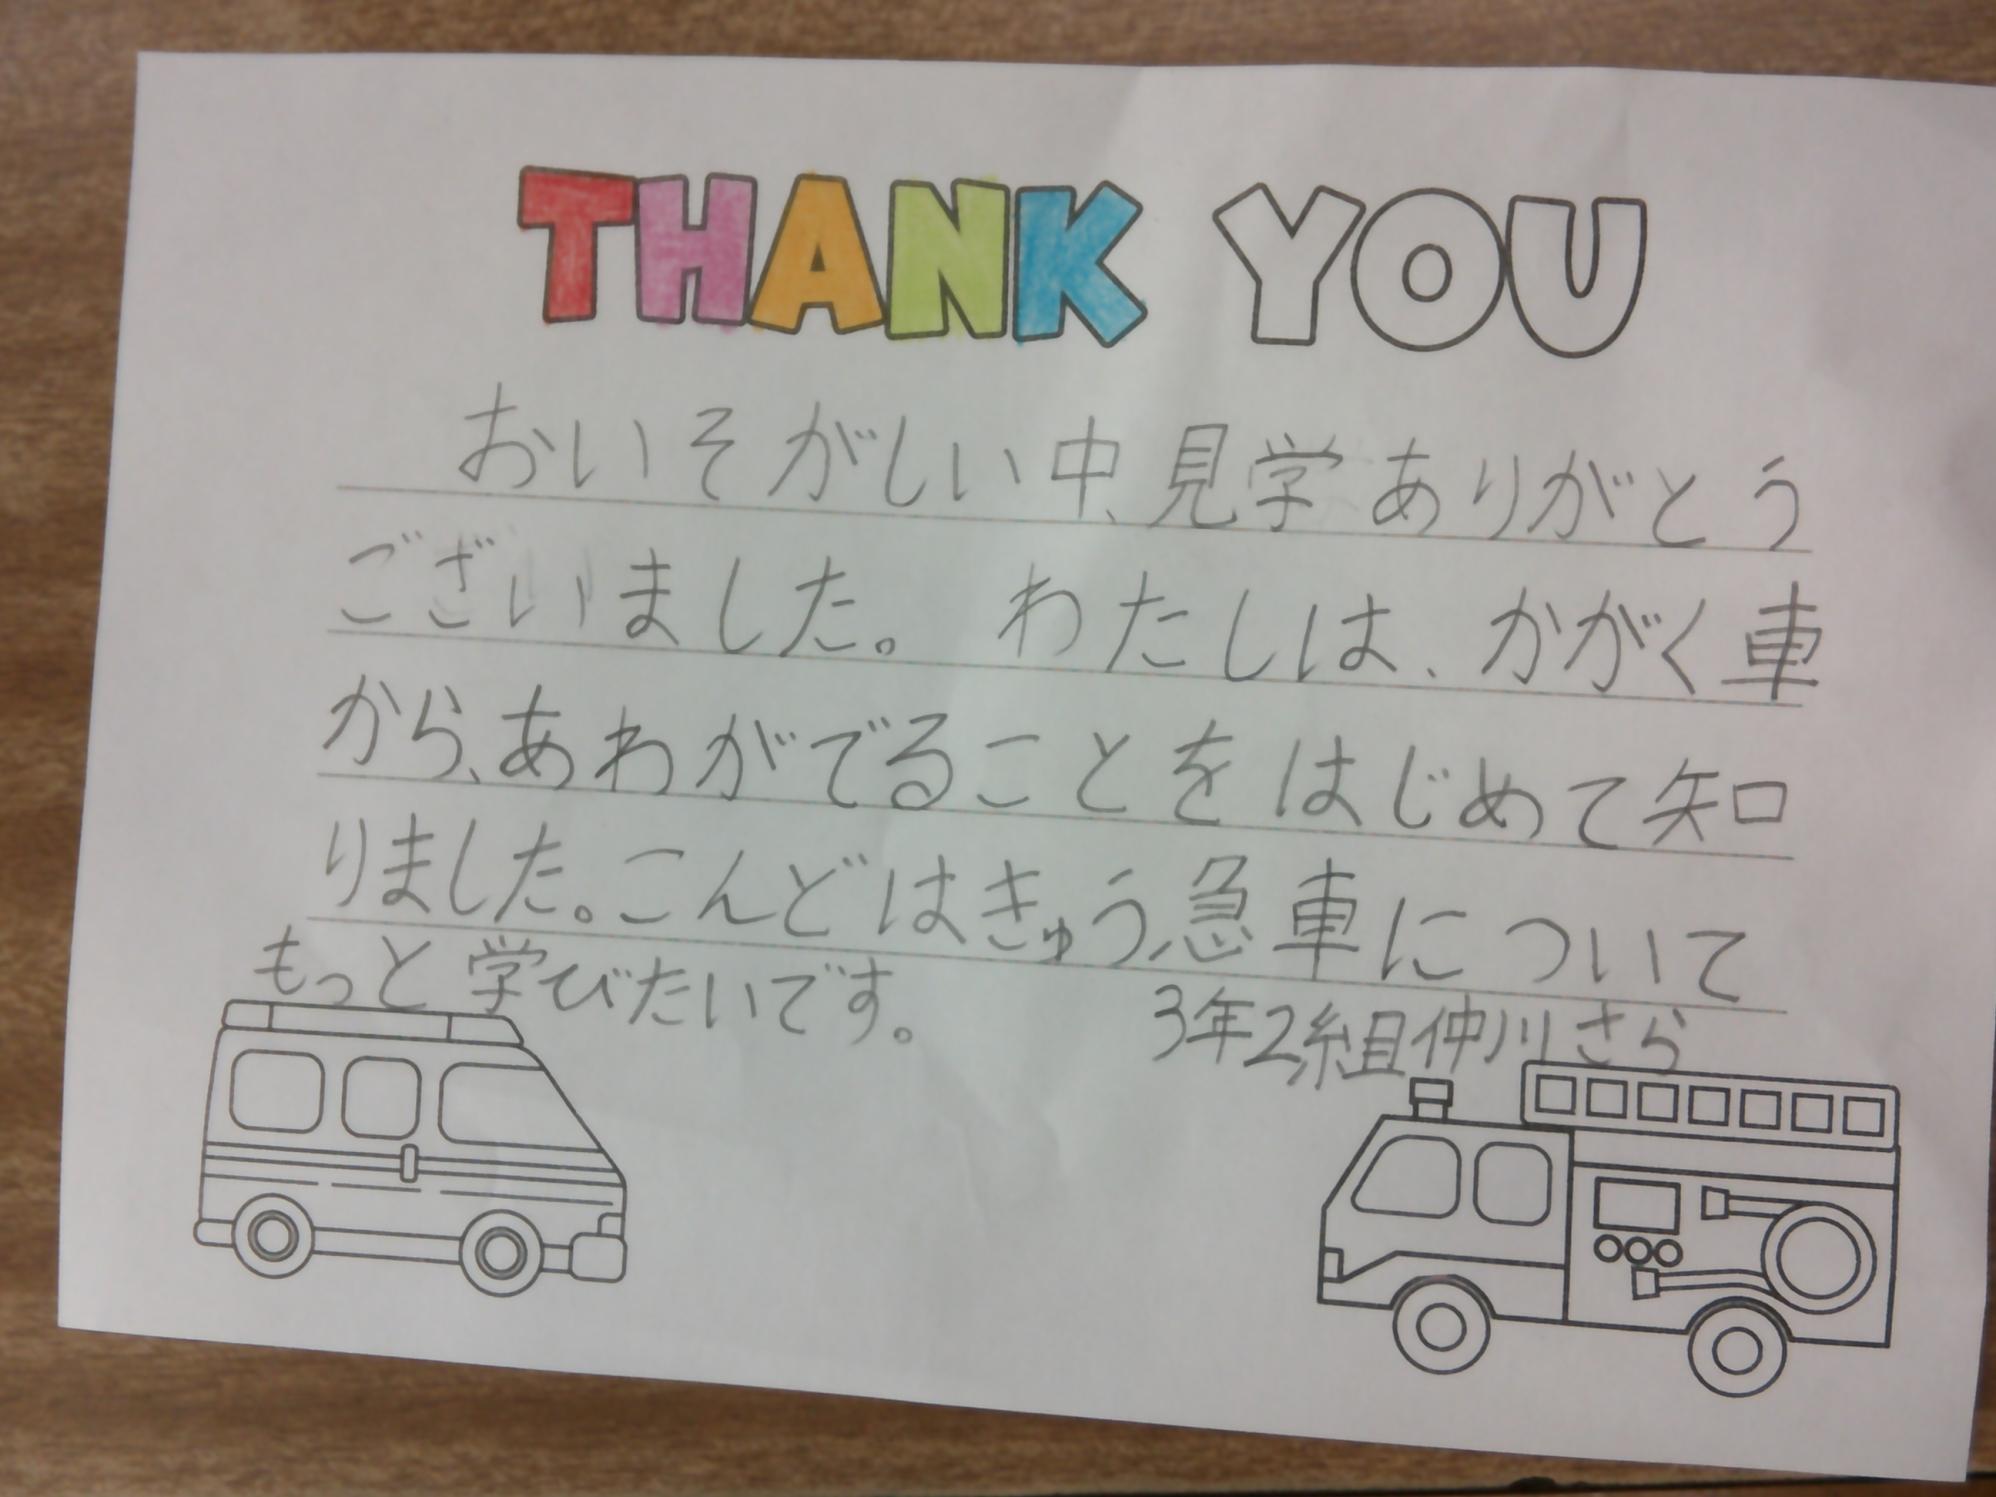 THANK YOU
おいそがしい中、見学ありがとう
ございました。 わたしは、かがく車
から、あわがでることをはじめて知
りました。こんどはきゅう急車について
もっと学びたいです。
3年2組仲川さら